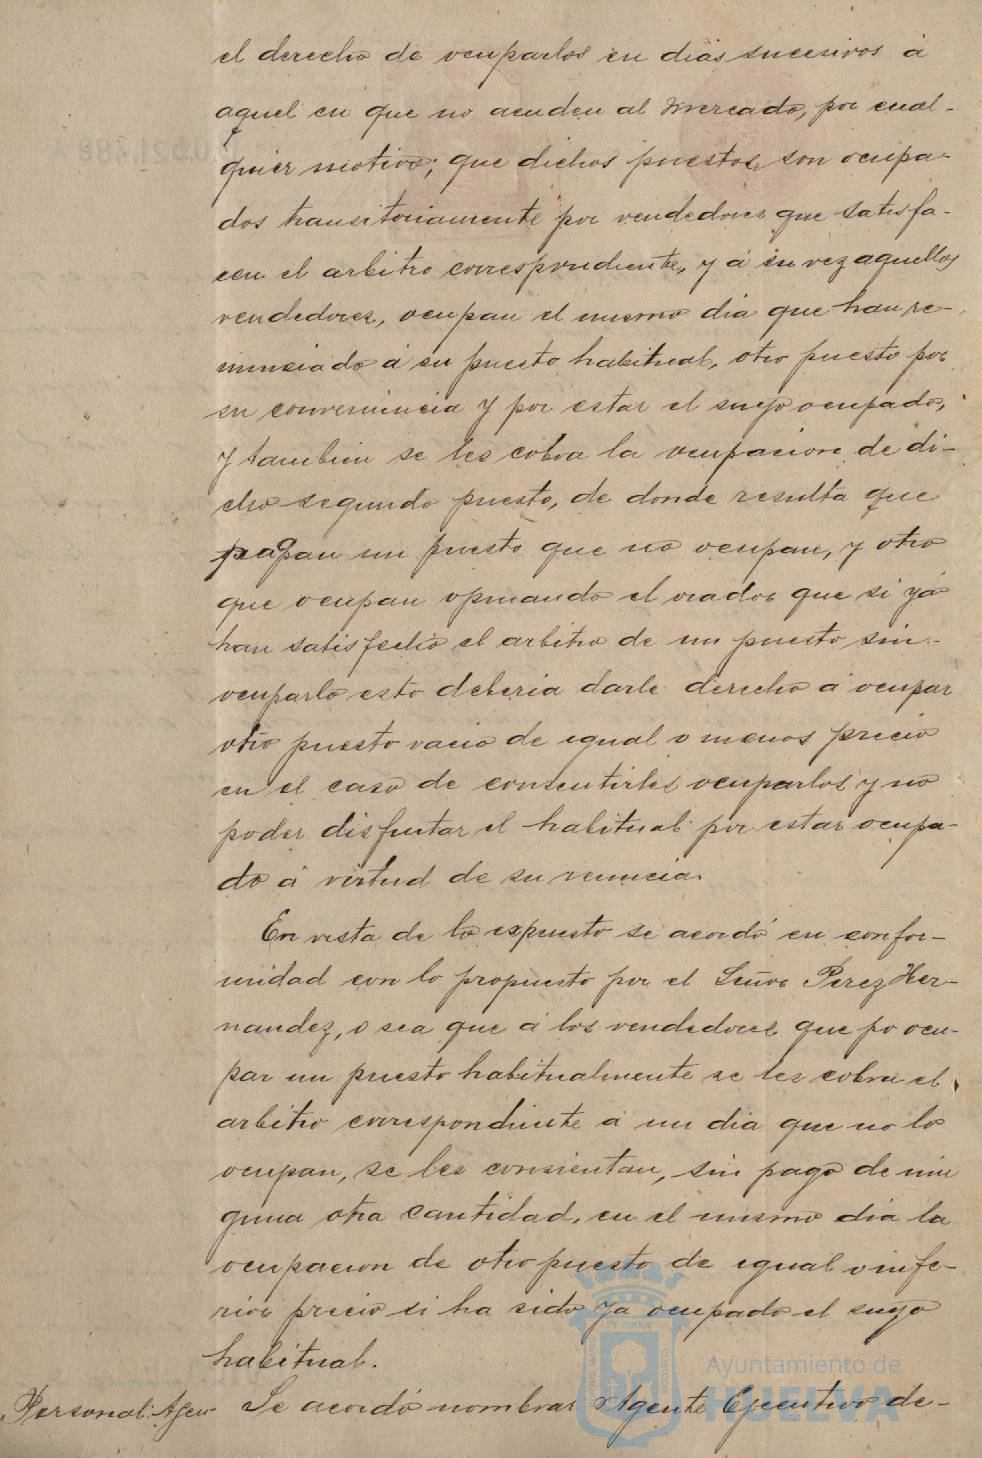 el derecho de ocuparlos en dias sucesivos á
aquel en que no acuden al Mercado, por cual-
quier motivo; que dichos puestos son ocupa-
dos transitoriamente por vendedores que satisfa-
cen el arbitrio correspondiente, y á su vez aquellos
vendedores, ocupan el mismo dia que han re-
nunciado á su puesto habitual, otro puesto por
su conveniencia y por estar el suyo ocupado,
y tambien se les cobra la ocupacion de di-
cho segundo puesto, de donde resulta que
pagan un puesto que no ocupan, y otro
que ocupan opinando el orador que si yá
han satisfecho el arbitrio de un puesto sin
ocuparlo esto deberia darle derecho á ocupar
otro puesto vacio de igual o menos precio
en el caso de consentirles ocuparlos y no
poder disfrutar el habitual por estar ocupa-
do á virtud de su renuncia.
En vista de lo expuesto se acordó en confor-
midad con lo propuesto por el Señor Perez Her-
nandez, o sea que á los vendedores que po ocu-
par un puesto habitualmente se les cobra el
arbitrio correspondiente á un dia que no lo
ocupan, se les consientan, sin pago de nin
guna otra cantidad, en el mismo dia la
ocupacion de otro puesto de igual o infe-
rior precio si ha sido ya ocupado el suyo
habitual.
Personal: Agen Se acordó nombrar Agente Ejecutivo de-
Ayuntamiento de
HUELVA